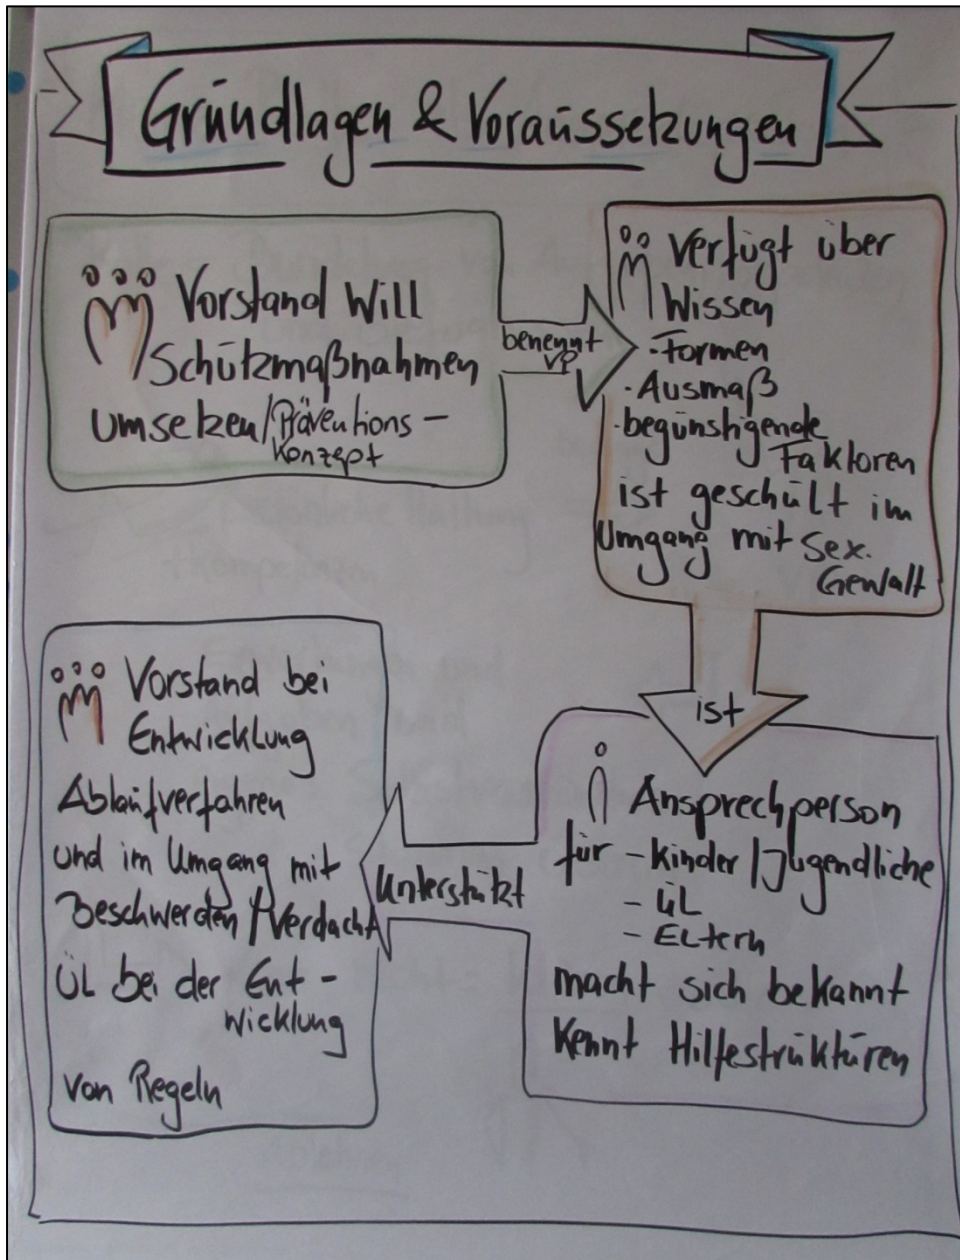 Grundlagen & Voraussetzungen
Vorstand Will
Schutzmaßnahmen
Umsetzen/Präventions-
Konzept
benennt
VP
Verfügt über
Wissen
-Formen
-Ausmaß
-begünstigende
Faktoren
ist geschult im
Umgang mit sex.
Gewalt
ist
Ansprechperson
für - Kinder/Jugendliche
- ÜL
- Eltern
macht sich bekannt
Kennt Hilfestrukturen
Unterstützt
Vorstand bei
Entwicklung
Ablaufverfahren
und im Umgang mit
Beschwerden/Verdacht
ÜL bei der Ent-
wicklung
von Regeln